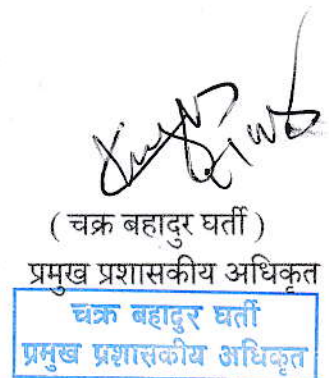 ( चक्र बहादुर घर्ती )
प्रमुख प्रशासकीय अधिकृत
चक्र बहादुर घर्ती
प्रमुख प्रशासकीय अधिकृत